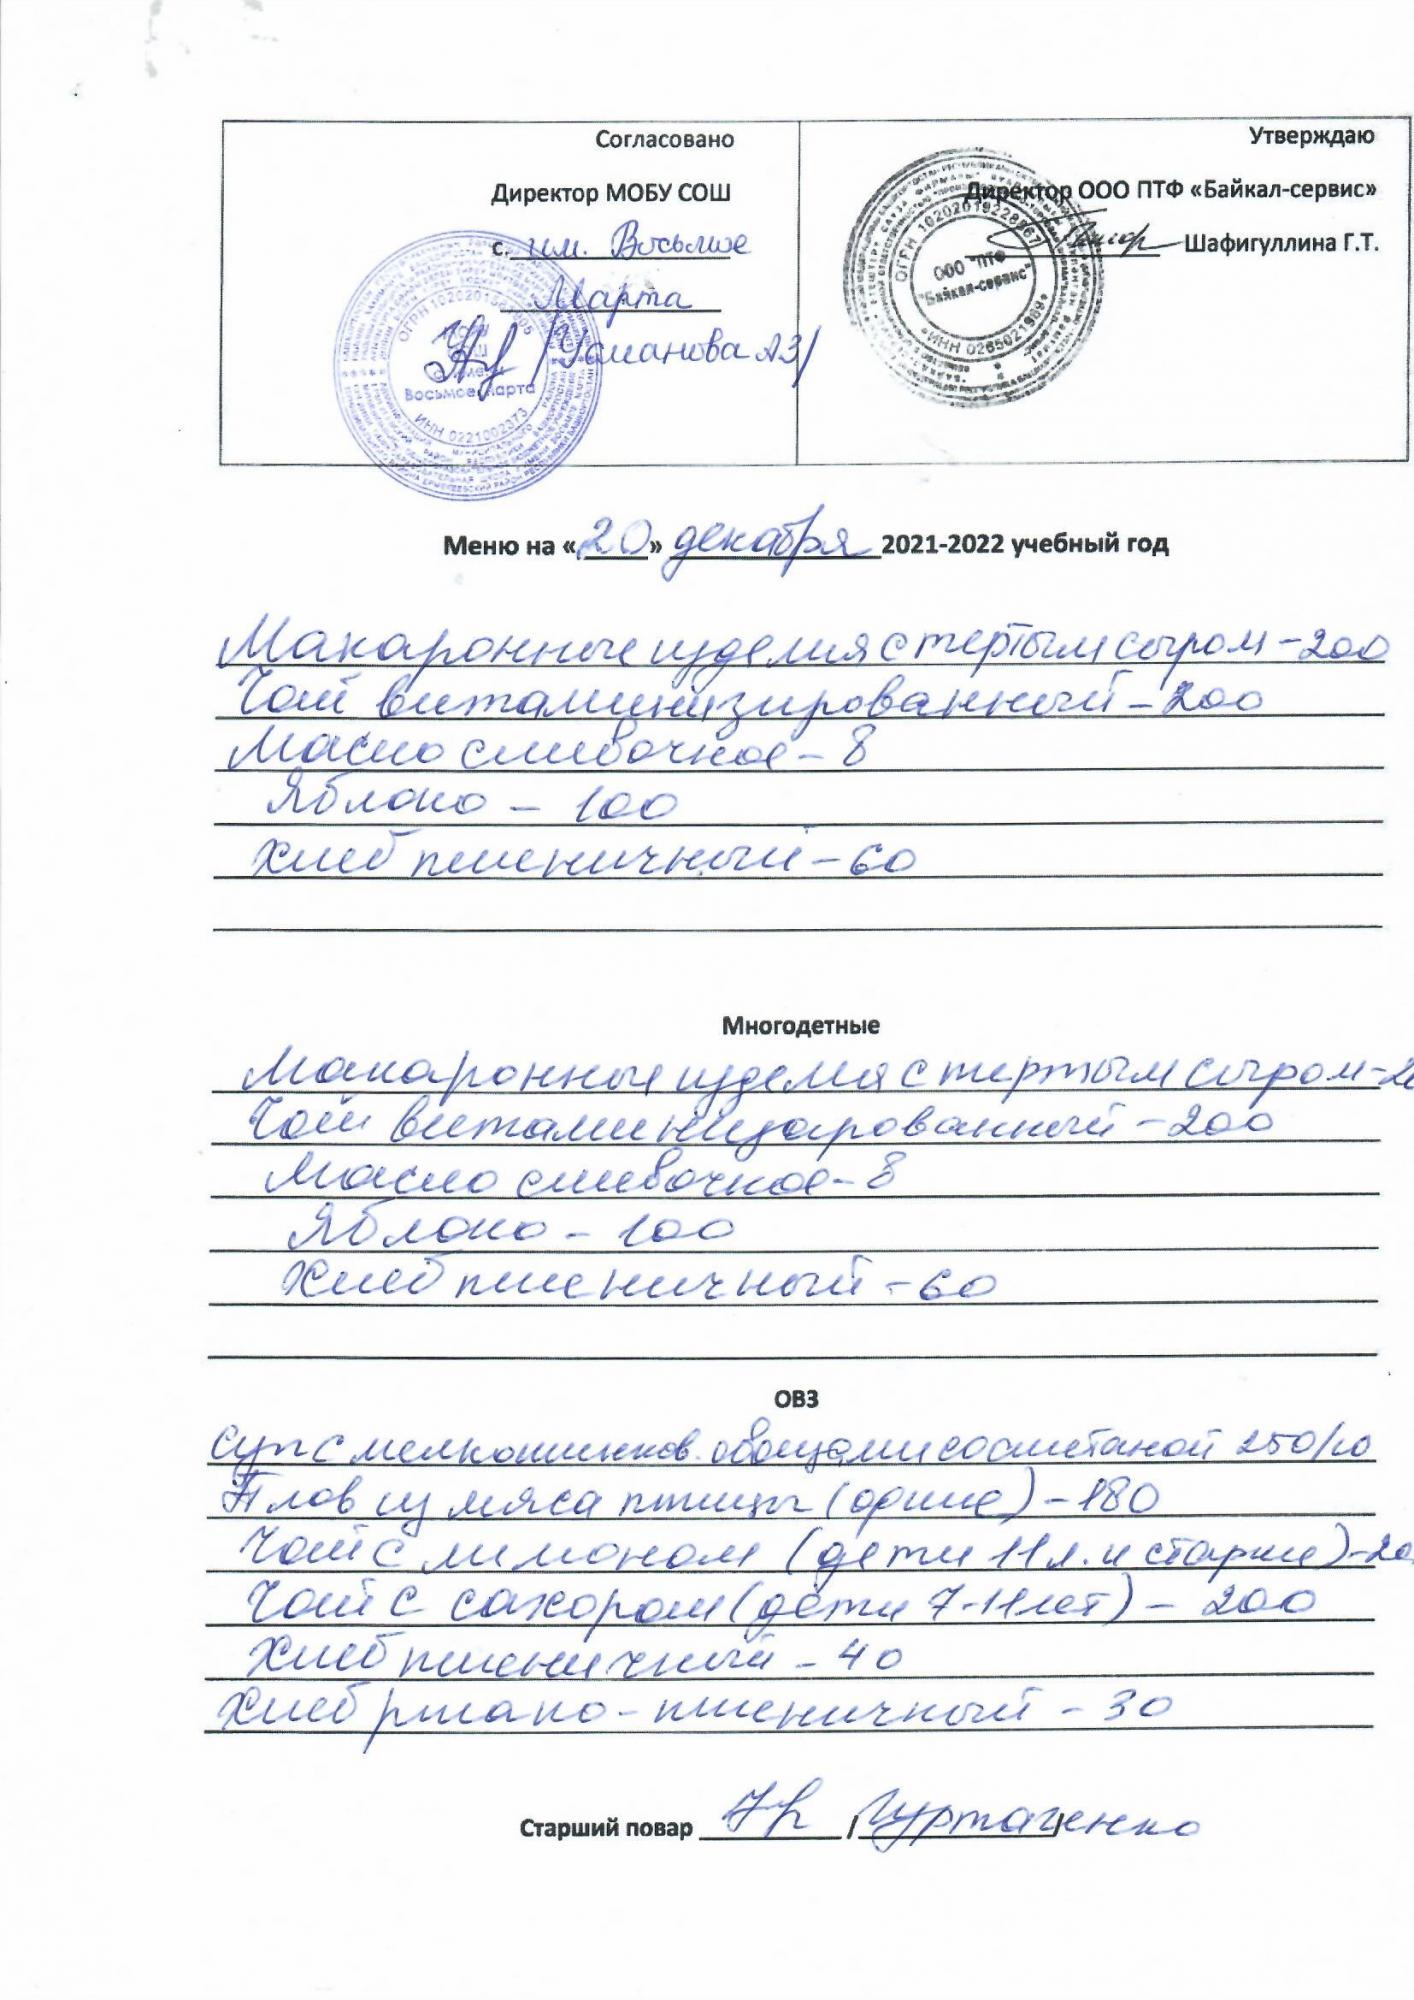 Согласовано
Директор МОБУ СОШ
с. им. Восьмое
Марта
/Усманова АЗ/
ОГРН
с. имени
Восьмое Марта
ИНН 0221002373
Утверждаю
Директор ООО ПТФ «Байкал-сервис»
Шафигуллина Г.Т.
ОГРН 1020201922886
ООО "ПТФ
"Байкал-сервис"
ИНН 0265021989
Меню на « 20 » декабря 2021-2022 учебный год
Макаронные изделия с тертым сыром - 200
Чай витаминизированный - 200
Масло сливочное - 8
Яблоко - 100
Хлеб пшеничный - 60
Многодетные
Макаронные изделия с тертым сыром - 20
Чай витаминизированный - 200
Масло сливочное - 8
Яблоко - 100
Хлеб пшеничный - 60
ОВЗ
Суп с мелкошинков. овощами со сметаной 250/10
Плов из мяса птицы (орние) - 180
Чай с лимоном (дети 11 л. и старше) - 20
Чай с сахором (дети 7-11 лет) - 200
Хлеб пшеничный - 40
Хлеб ржано - пшеничный - 30
Старший повар / /